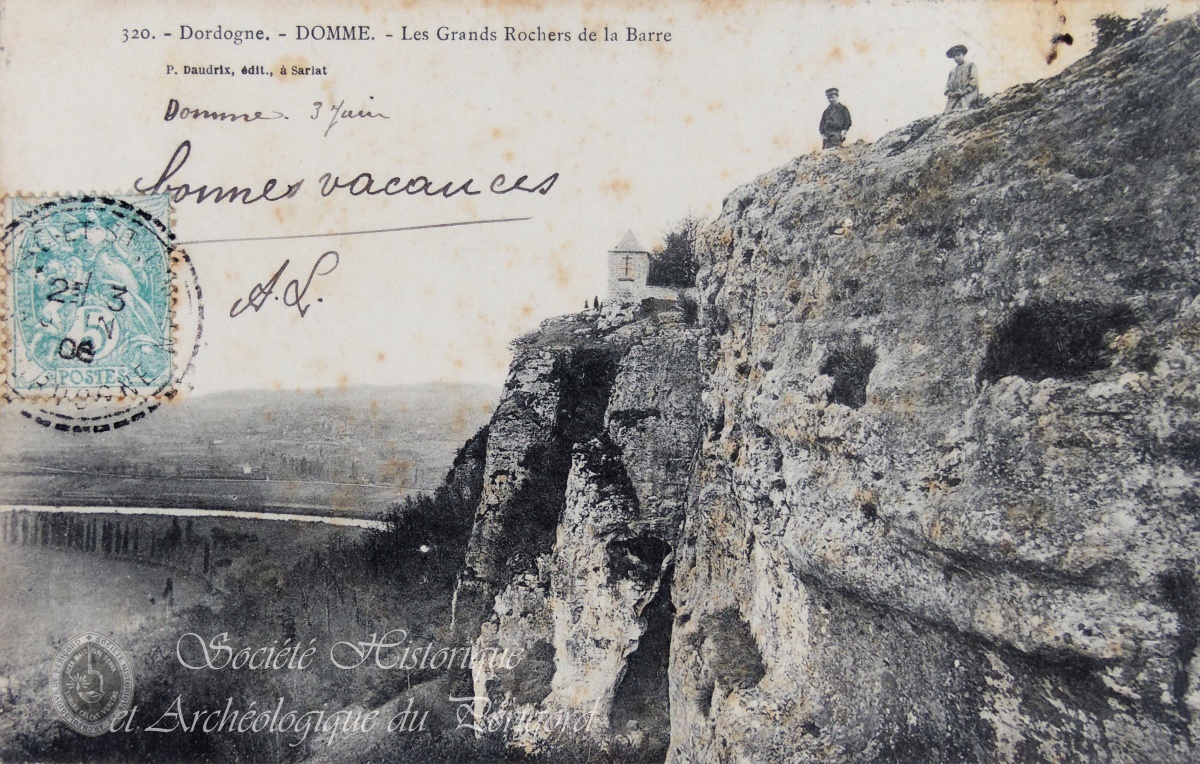 320. - Dordogne. - DOMME. - Les Grands Rochers de la Barre
P. Daudrix, édit., à Sarlat
Domme. 3 Juin
bonnes vacances
A. L.
3
06
5
POSTES
Société Historique
et Archéologique du Périgord